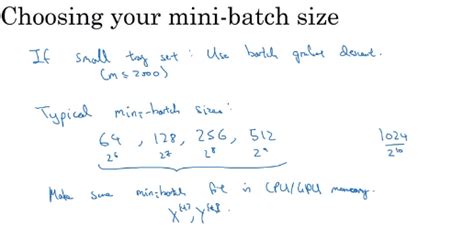 Choosing your mini-batch size
If small trag set : Use batch gradient descent.
(m ≤ 2000)
Typical mini-batch sizes:
64 , 128 , 256 , 512 1024
2⁶ 2⁷ 2⁸ 2⁹ 2¹⁰
Make sure minibatch fit in CPU/GPU memory.
X{t}, Y{t}.